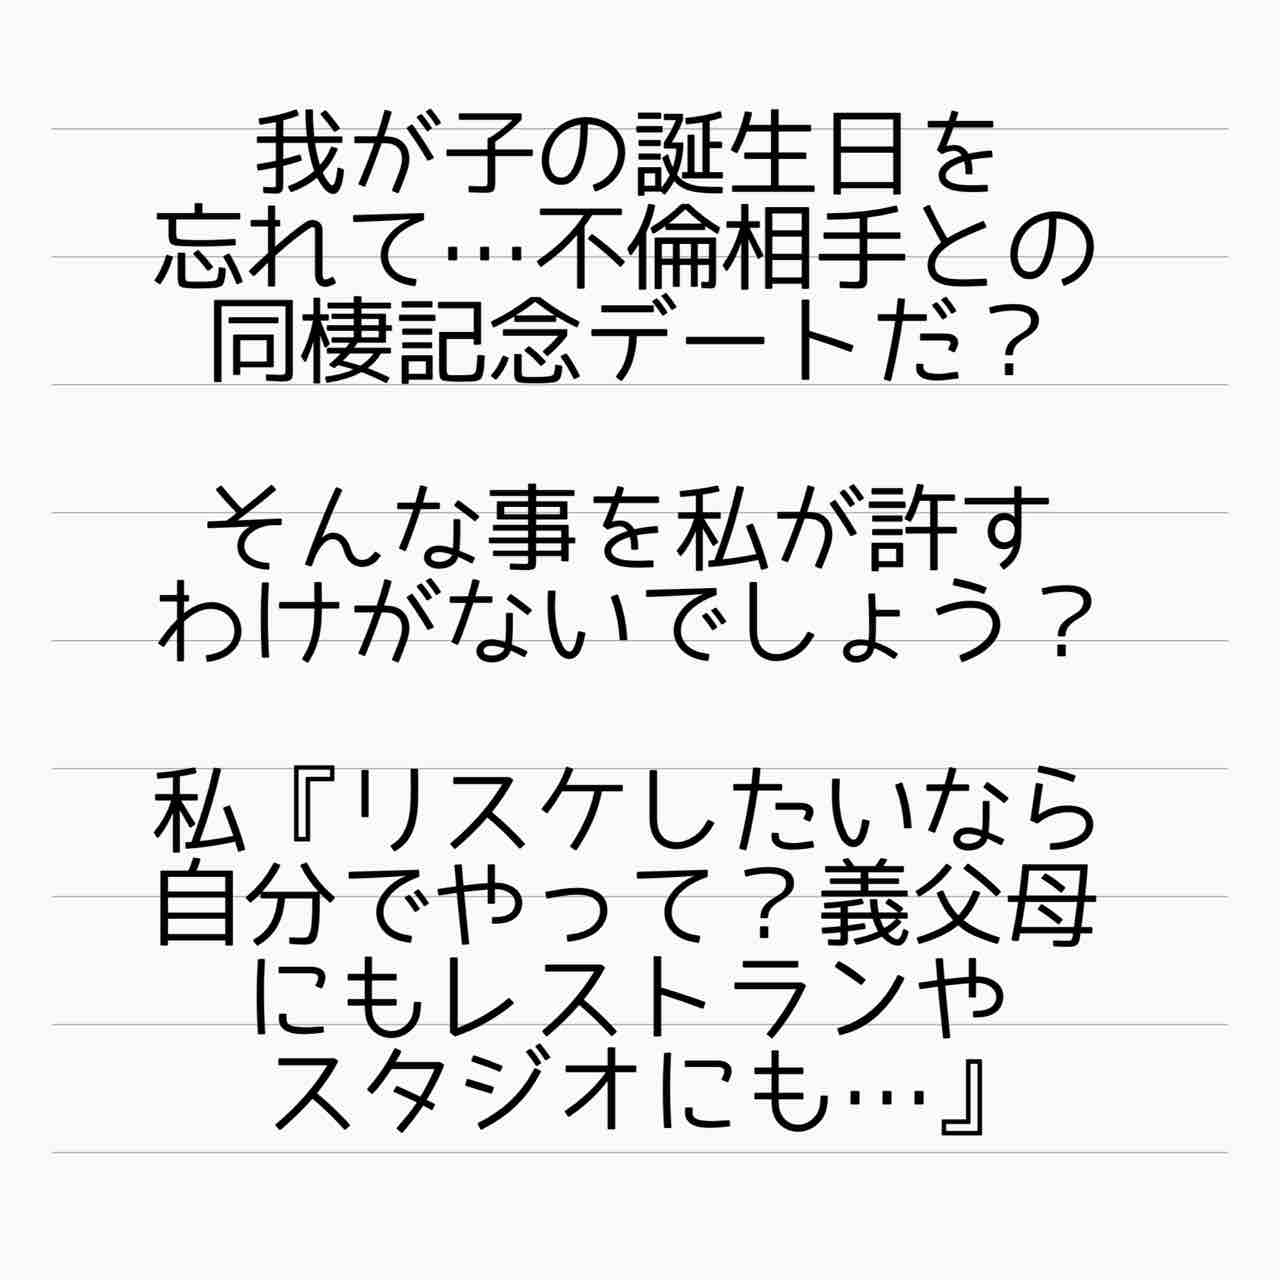 我が子の誕生日を
忘れて…不倫相手との
同棲記念デートだ？
そんな事を私が許す
わけがないでしょう？
私『リスケしたいなら
自分でやって？義父母
にもレストランや
スタジオにも…』